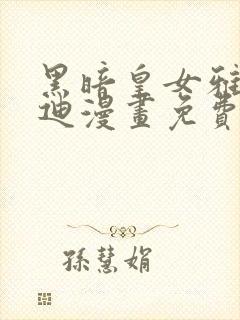 黑暗皇女雅
迪漫畫免費
孫慧娟